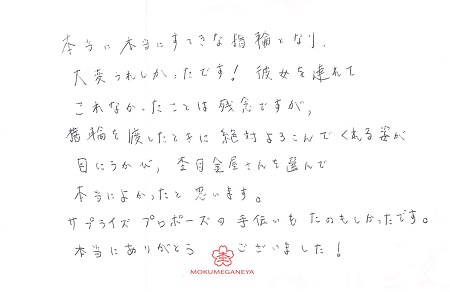 本当に本当にすてきな指輪となり、
大変うれしかったです！彼女を連れて
これなかったことは残念ですが、
指輪を渡したときに絶対よろこんでくれる姿が
目にうかび、杢目金屋さんを選んで
本当によかったと思います。
サプライズプロポーズの手伝いもたのもしかったです。
本当にありがとうございました！
杢
MOKUMEGANEYA